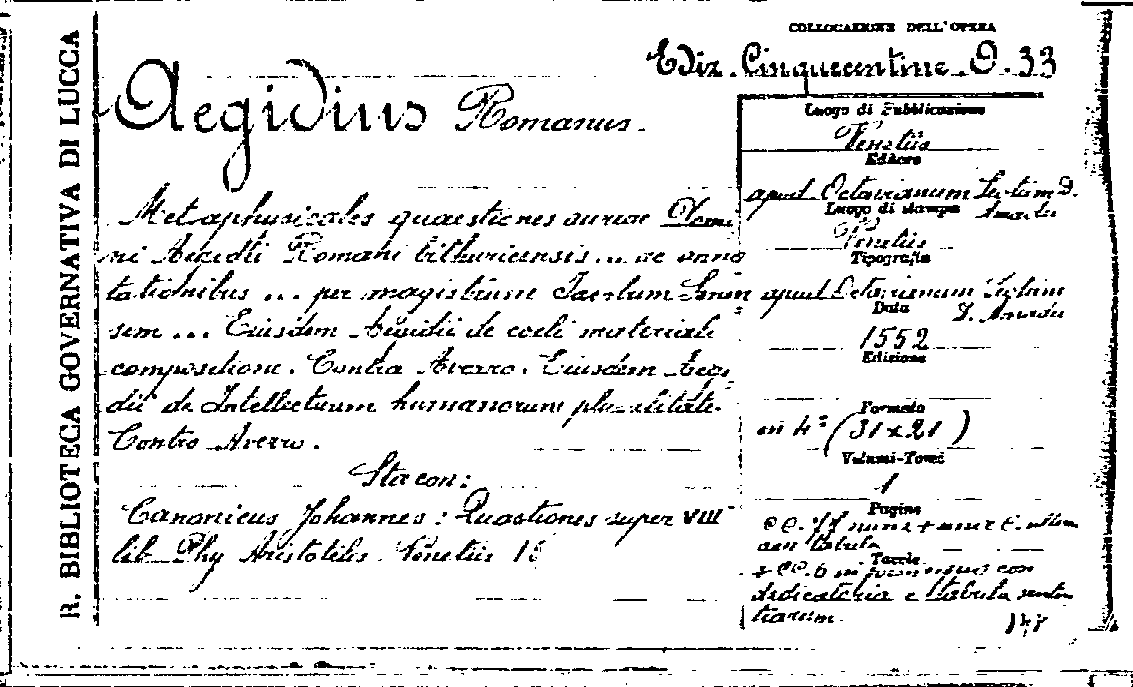 R. BIBLIOTECA GOVERNATIVA DI LUCCA
COLLOCAZIONE DELL'OPERA
Ediz. Cinquecentine. D. 33
Aegidius Romanus.
Metaphysicales quaestiones aureae Domi
ni Aegidii Romani bithuricensis ... ac anno
tationibus ... per magistrum
sem ... Eiusdem Aegidii de coeli materiali
compositione. Contra Averro. Eiusdem Aegi
dii de Intellectuum humanorum pluralitate.
Contra Averro.
Sta con:
Canonicus Johannes: Quaestiones super VIII
lib. Phy Aristotilis Venetiis 15
Luogo di Pubblicazione
Venetiis
Editore
apud Octavianum D.
Luogo di stampa
Venetiis
Tipografia
apud Octavianum
Data
1552
Edizione
Formato
in 4° (31x21)
Volumi-Tomi
1
Pagine
cc. num +
Tavole
+ cc. 6 in con
dedicatoria e tabula senten
tiarum.